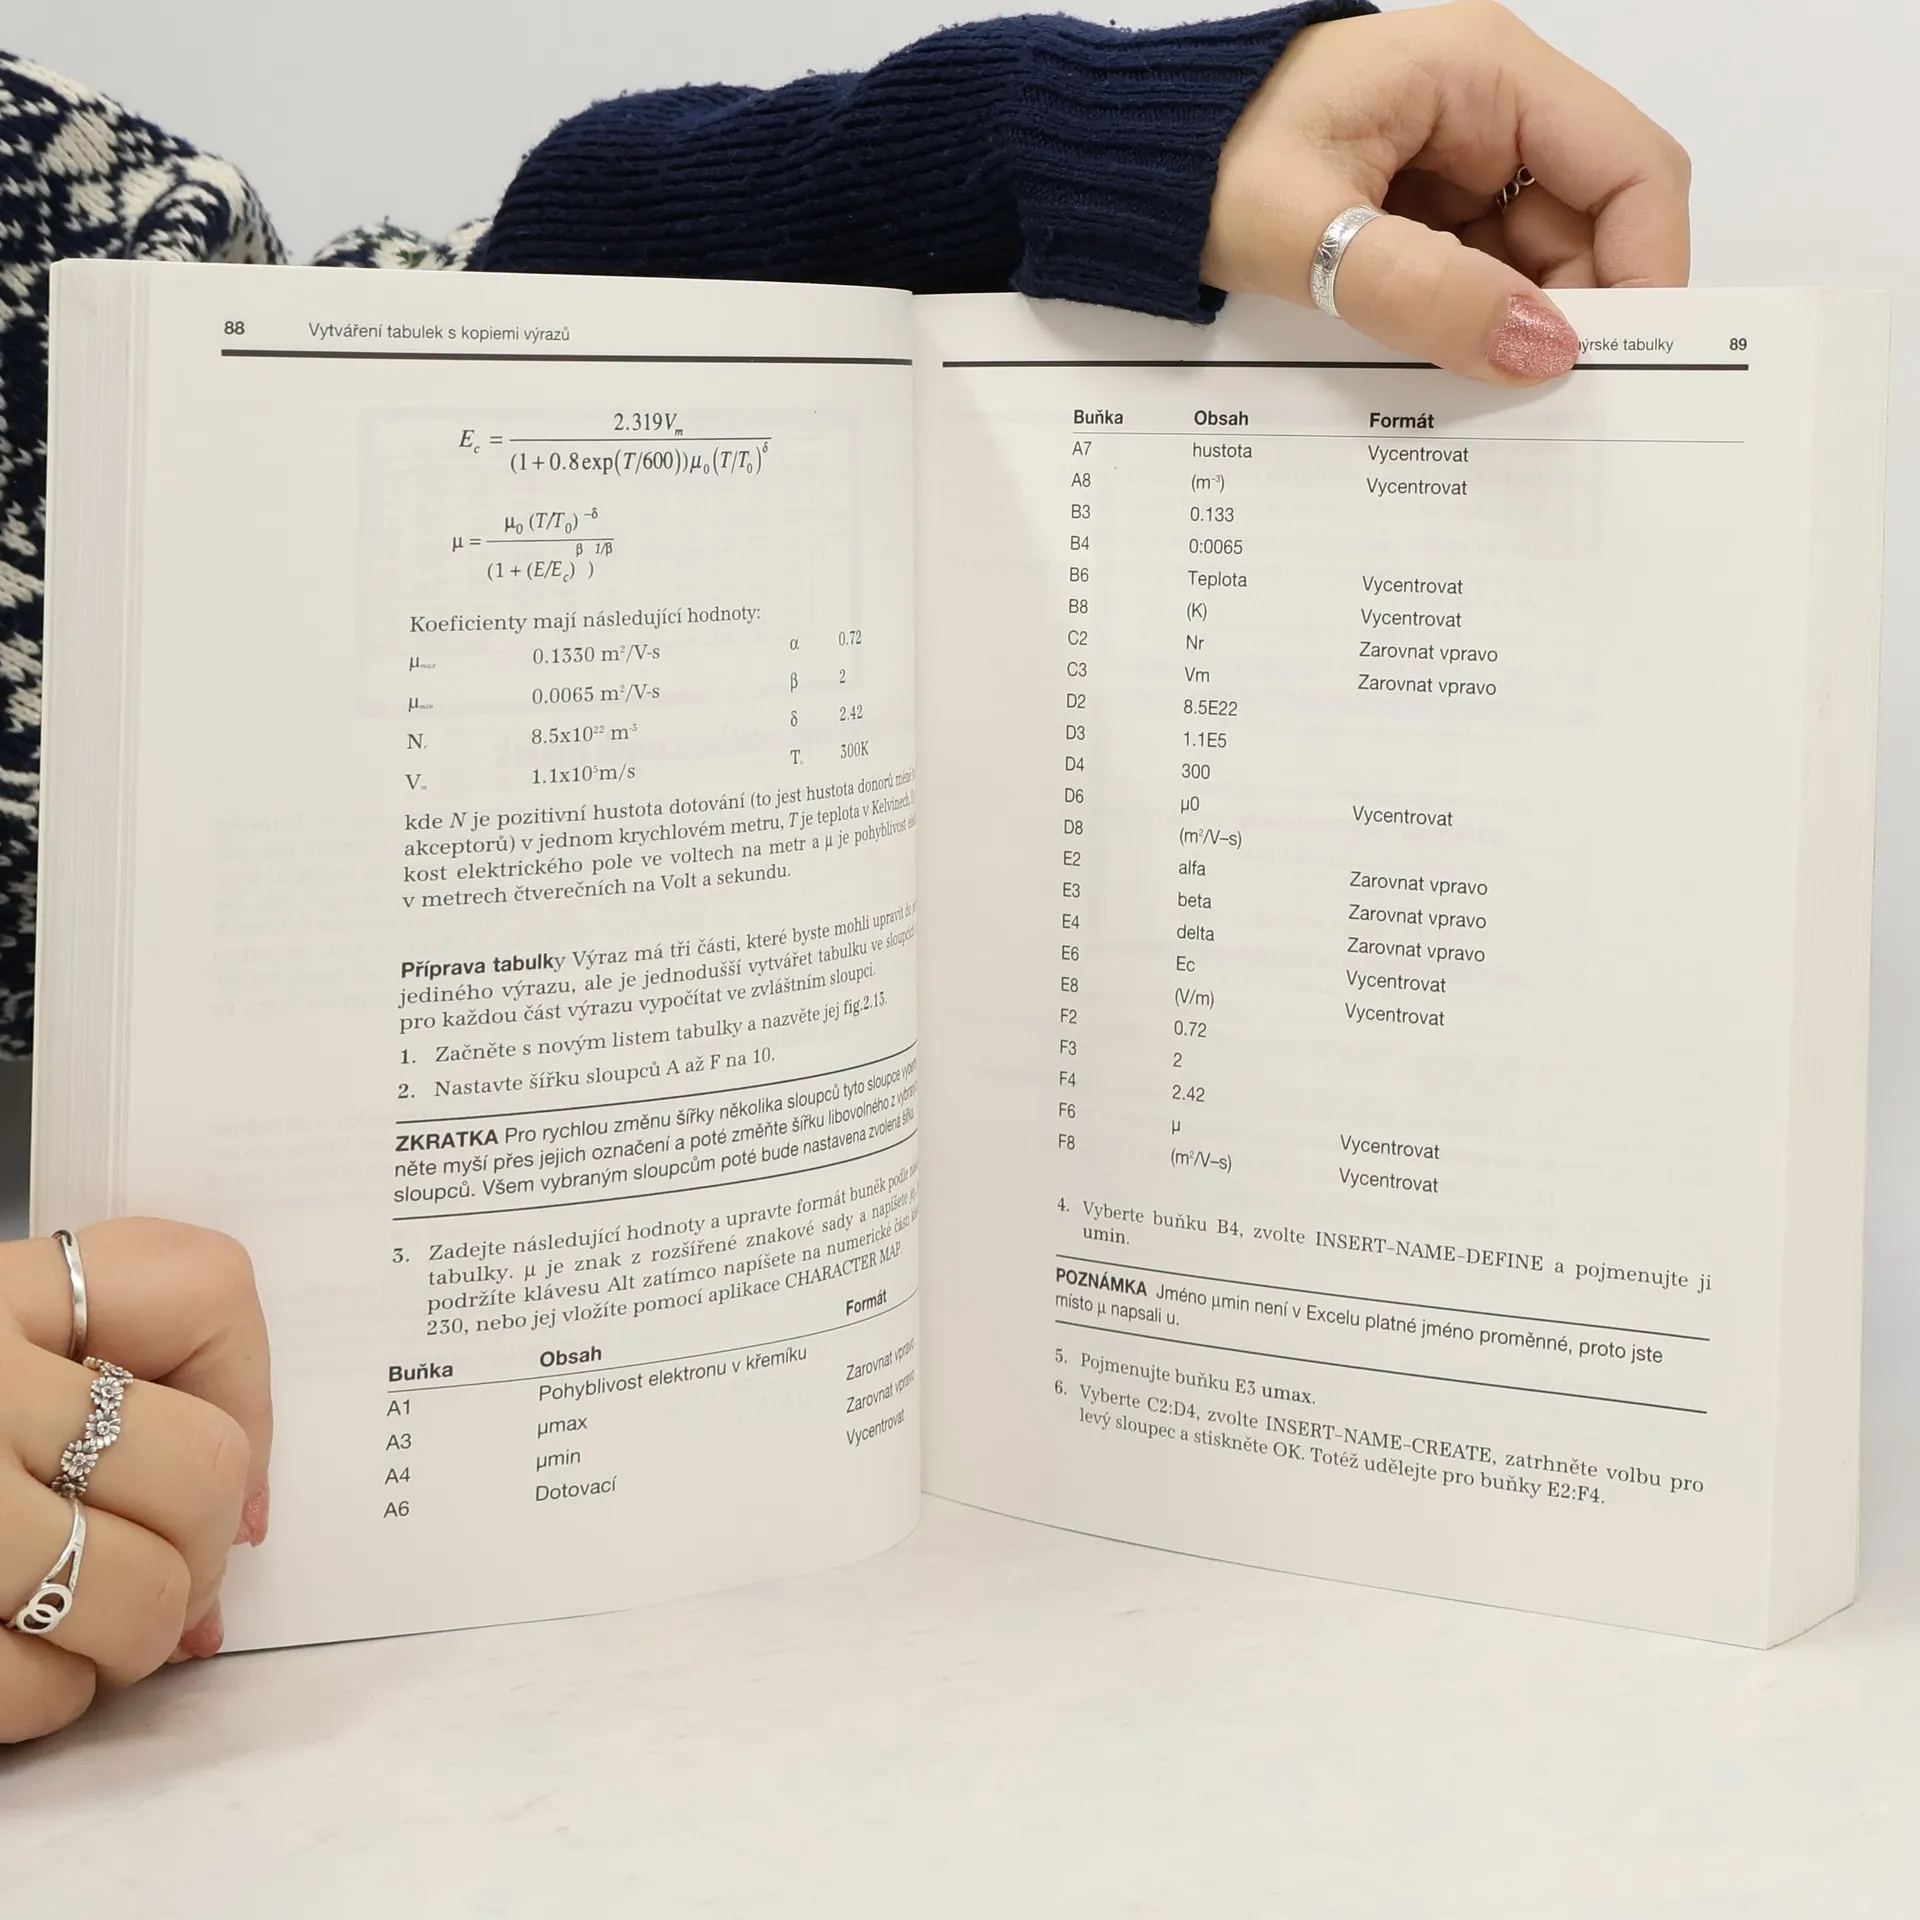 88 Vytváření tabulek s kopiemi výrazů
E_c = 2.319V_m / (1+0.8exp(T/600))μ_0(T/T_0)^δ
μ = μ_0 (T/T_0)^–δ / (1 + (E/E_c)^β)^1/β
Koeficienty mají následující hodnoty:
μmax 0.1330 m²/V-s α 0.72
μmin 0.0065 m²/V-s β 2
N_r 8.5x10²² m⁻³ δ 2.42
V_m 1.1x10⁵m/s T_0 300K
kde N je pozitivní hustota dotování (to jest hustota donorů méně
akceptorů) v jednom krychlovém metru, T je teplota v Kelvinech,
kost elektrického pole ve voltech na metr a μ je pohyblivost
v metrech čtverečních na Volt a sekundu.
Příprava tabulky Výraz má tři části, které byste mohli upravit do
jediného výrazu, ale je jednodušší vytvářet tabulku ve sloupcích
pro každou část výrazu vypočítat ve zvláštním sloupci.
1. Začněte s novým listem tabulky a nazvěte jej fig.2.13.
2. Nastavte šířku sloupců A až F na 10.
ZKRATKA Pro rychlou změnu šířky několika sloupců tyto sloupce
něte myší přes jejich označení a poté změňte šířku libovolného z
sloupců. Všem vybraným sloupcům poté bude nastavena zvolená šířka.
3. Zadejte následující hodnoty a upravte formát buněk podle
tabulky. μ je znak z rozšířené znakové sady a napíšete
podržíte klávesu Alt zatímco napíšete na numerické části
230, nebo jej vložíte pomocí aplikace CHARACTER MAP.
Buňka Obsah Formát
A1 Pohyblivost elektronu v křemíku
A3 μmax Zarovnat vpravo
A4 μmin Zarovnat vpravo
A6 Dotovací Vycentrovat
ýrské tabulky 89
Buňka Obsah Formát
A7 hustota Vycentrovat
A8 (m⁻³) Vycentrovat
B3 0.133
B4 0:0065
B6 Teplota Vycentrovat
B8 (K) Vycentrovat
C2 Nr Zarovnat vpravo
C3 Vm Zarovnat vpravo
D2 8.5E22
D3 1.1E5
D4 300
D6 μ0 Vycentrovat
D8 (m²/V–s)
E2 alfa Zarovnat vpravo
E3 beta Zarovnat vpravo
E4 delta Zarovnat vpravo
E6 Ec Vycentrovat
E8 (V/m) Vycentrovat
F2 0.72
F3 2
F4 2.42
F6 μ Vycentrovat
F8 (m²/V–s) Vycentrovat
4. Vyberte buňku B4, zvolte INSERT–NAME–DEFINE a pojmenujte ji
umin.
POZNÁMKA Jméno μmin není v Excelu platné jméno proměnné, proto jste
místo μ napsali u.
5. Pojmenujte buňku E3 umax.
6. Vyberte C2:D4, zvolte INSERT–NAME–CREATE, zatrhněte volbu pro
levý sloupec a stiskněte OK. Totéž udělejte pro buňky E2:F4.